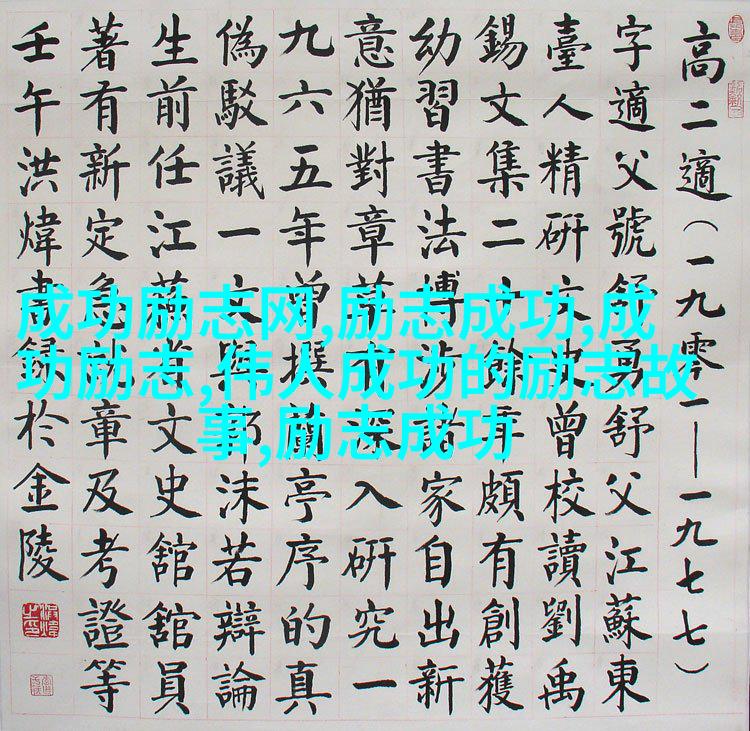 高二適（一九零一—一九七七）
字適父號舒勇舒父江蘇東
臺人精研文史曾校讀劉禹
錫文集二十餘年頗有創獲
幼習書法博涉諸家自出新
意猶對章草尤深入研究一
九六五年曾撰蘭亭序的真
偽駁議一文與郭沫若辯論
生前任江蘇省文史舘舘員
著有新定急就章及考證等
壬午洪煒書録於金陵
成功励志网,励志成功,成
功励志,伟人成功的励志故
事,励志成功